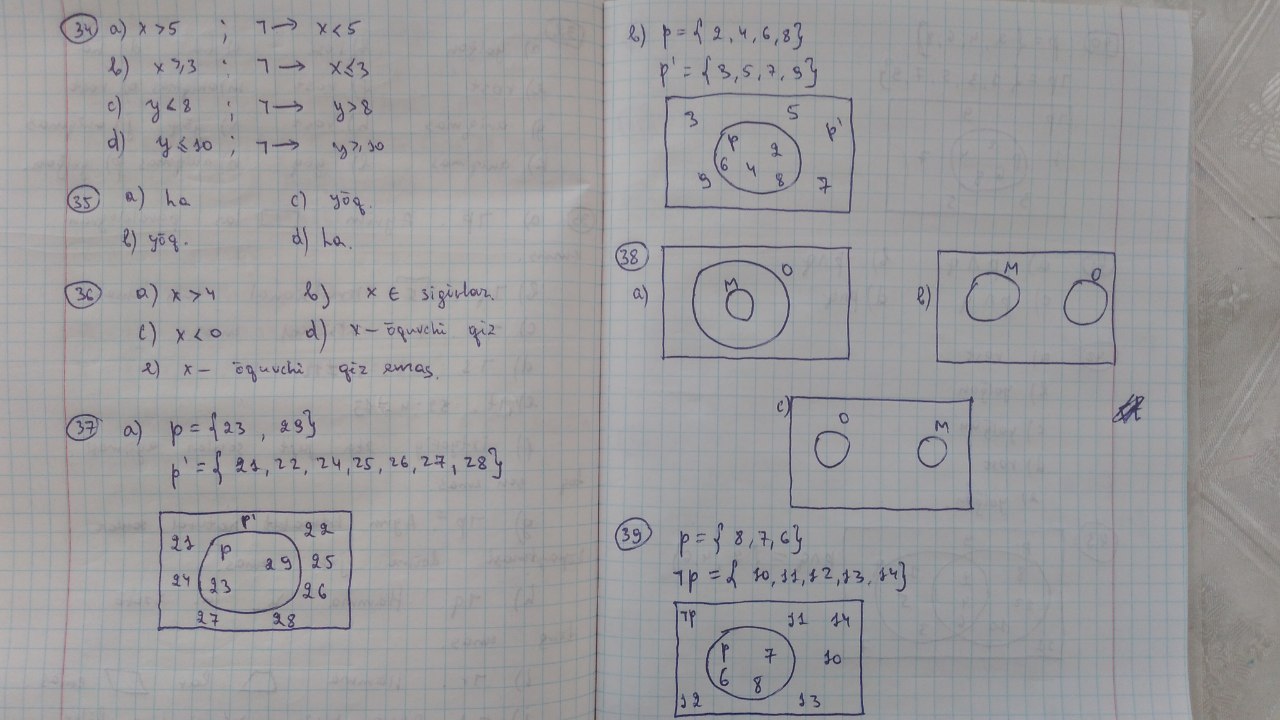 34 a) x > 5 ; ¬ → x < 5
b) x ⩾ 3 ; ¬ → x ≤ 3
c) y < 8 ; ¬ → y > 8
d) y ≤ 10 ; ¬ → y ⩾ 10
35 a) ha c) yōq.
b) yōq. d) ha.
36 a) x > 4 b) x ∈ sigirlar.
c) x < 0 d) x – ōquvchi qiz
e) x – ōquvchi qiz emas.
37 a) p = {23, 29}
p' = {21, 22, 24, 25, 26, 27, 28}
p'
21 22
p 29 25
24 23 26
27 28
b) p = {2, 4, 6, 8}
p' = {3, 5, 7, 9}
3 5 p'
p 2
6 4
9 8 7
38
a) M O
b) M O
c) O M
39 p = {8, 7, 6}
¬p = {10, 11, 12, 13, 14}
¬p 11 14
p 7 10
6 8
12 13